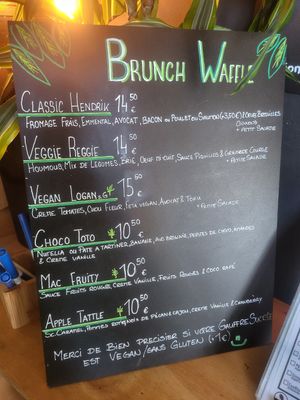 BRUNCH WAFFLE
CLASSIC HENDRIK 14,50 €
FROMAGE FRAIS, EMMENTAL, AVOCAT, BACON OU POULET OU SAUMON
+ PETITE SALADE
VEGGIE REGGIE 14,50 €
HOUMOUS, MIX DE LEGUMES, BRIE, OEUF DU CUIT, SAUCE
+ PETITE SALADE
VEGAN LOGAN 15,50 €
CREME TOMATES, CHOU FLEUR, FETA VEGAN, AVOCAT & TOFU
+ PETITE SALADE
CHOCO TOTO 10,50 €
NUTELLA OU PATE A TARTINER, BANANE, BROWNIE, PEPITES DE CHOCO, AMANDES
& CREME VANILLE
MAC FRUITY 10,50 €
SAUCE FRUITS ROUGES, CREME VANILLE, FRUITS ROUGES & COCO RAPÉ
APPLE TATTLE 10,50 €
SC. CARAMEL, POMMES ROTIES, NOIX DE PÉCAN & CAJOU, CREME VANILLE & CRANBERRY
MERCI DE BIEN PRECISER SI VOTRE GAUFFRE SUCRÉE
EST VEGAN / SANS GLUTEN (+1€)